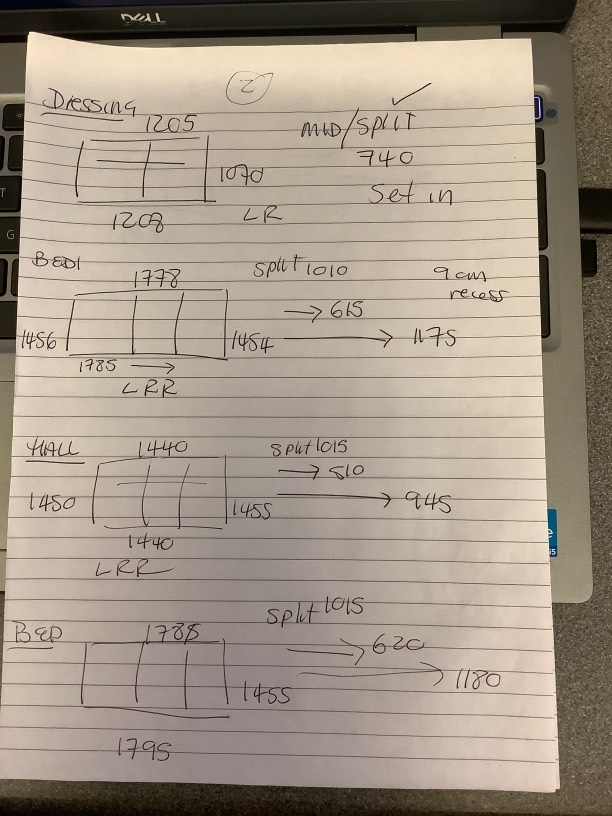 DELL
2
Dressing
1205
MID/SPLIT
740
1070
Set in
1208
LR
BED1
1778
split 1010
9cm
recess
→ 615
1456
1454
→ 1175
1785 →
LRR
HALL
1440
split 1015
→ 510
1450
1455
→ 945
1440
LRR
BED
1788
split 1015
→ 620
1455
→ 1180
1795